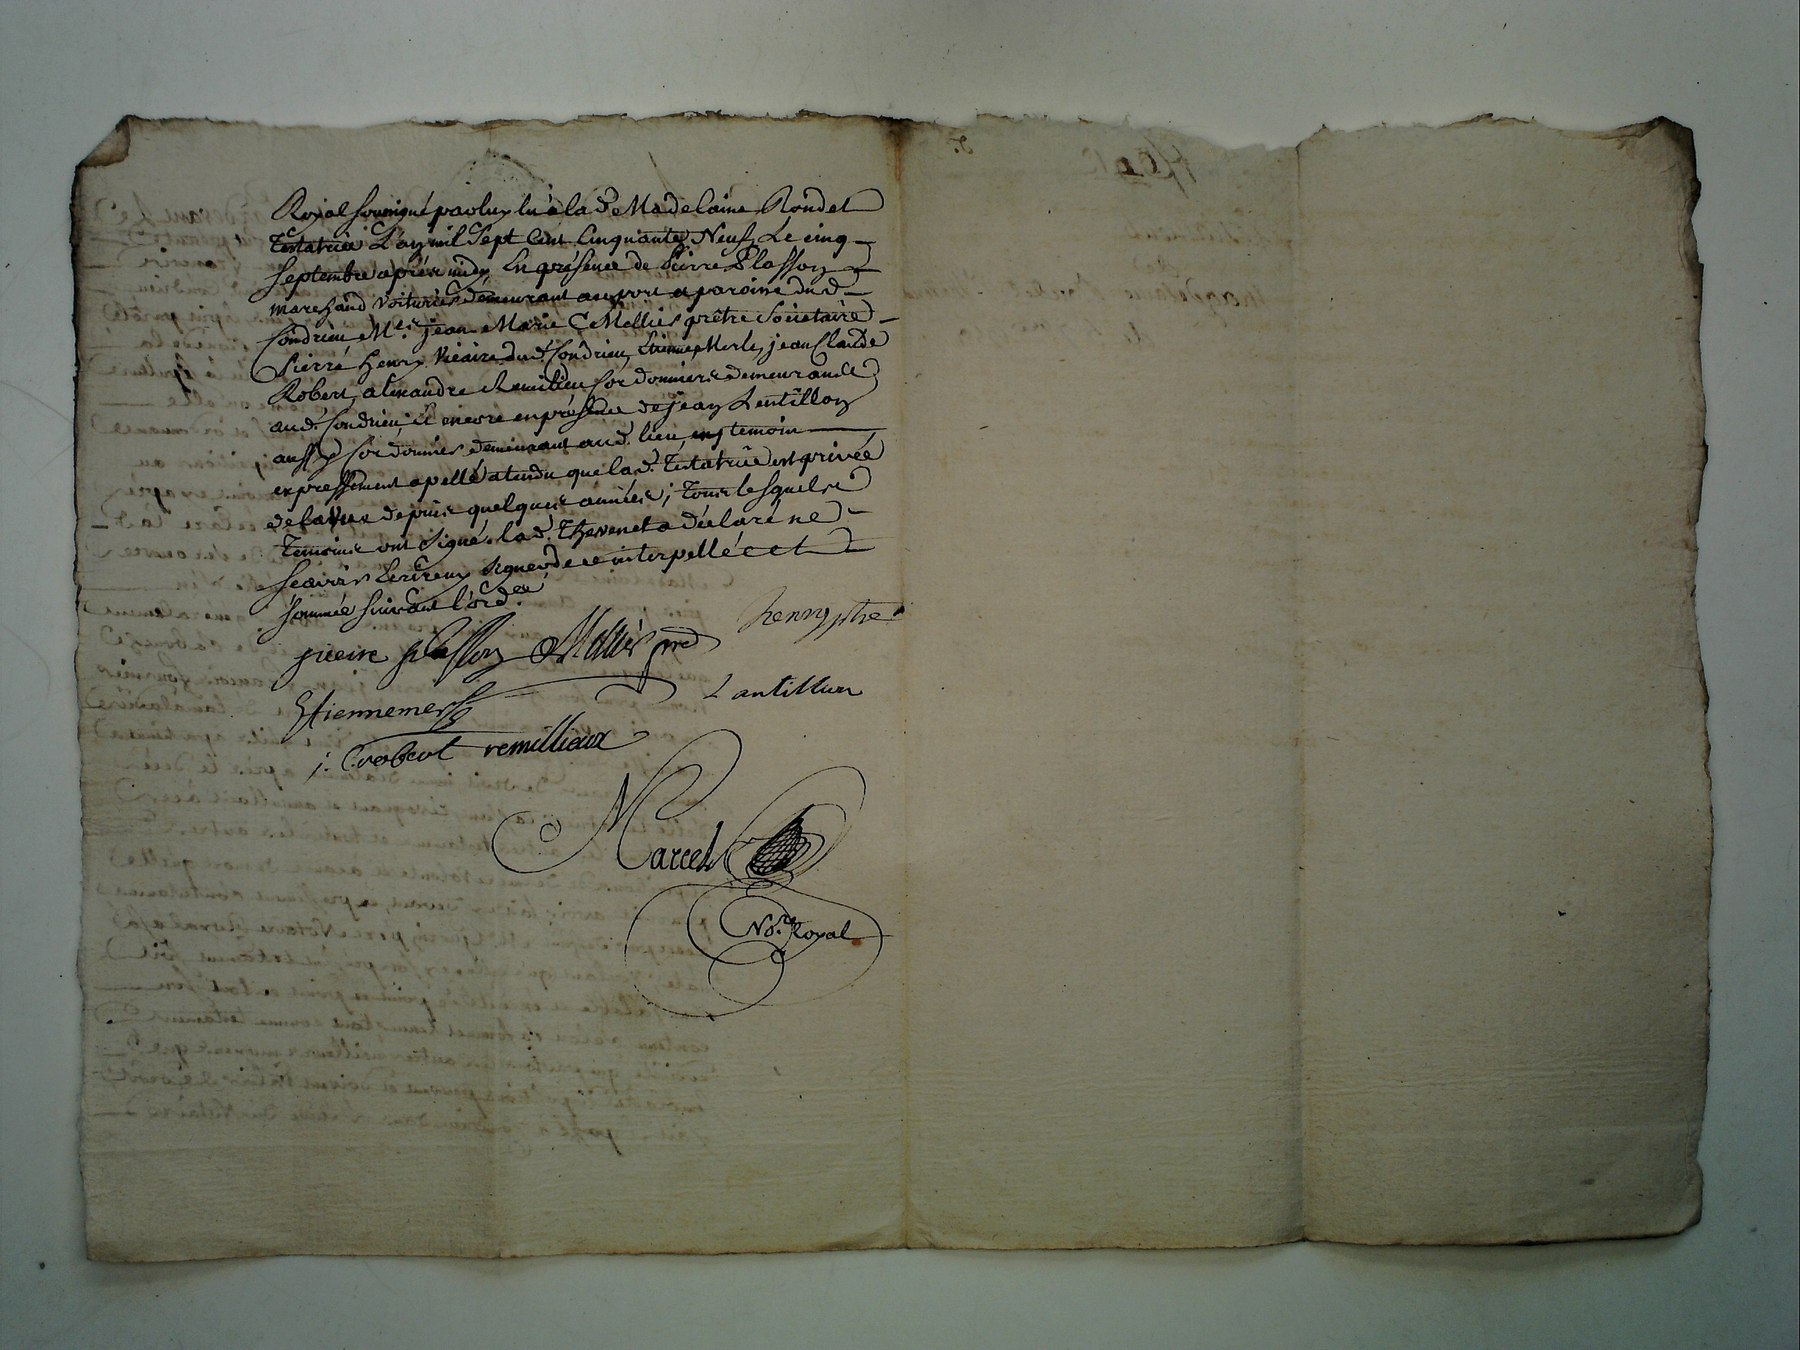 Royal soussigné par luy lu à la d.e Madelaine Rondet
Testatrice L'an mil sept cent cinquante Neuf Le cinq
septembre après midy En présence de Pierre Plasson
marchand voiturier demeurant au port et paroisse du d.
Condrieu M.re jean Marie Mellier prêtre Sociétaire
Pierre Henry Vicaire dud. Condrieu, Etienne Merle, jean Claude
Robert, alexandre Remilieu Cordonniers demeurant
aud. Condrieu, et encore en présence de jean Lentillon
aussy Cordonnier demeurant aud. lieu, temoin
expressément apellé atendu que la d. Testatrice est privée
de la Vue depuis quelques années; Tous lesquels
Temoins ont signé. la d. Thevenet a déclaré ne
scavoir Ecrire ny signer de ce interpellée et
sommée suivant l'ord.ce
pierre plasson Mellier pre henry ptre
Etienne merle Lantillon
j: C robert remillieux
Marcel
No.re Royal